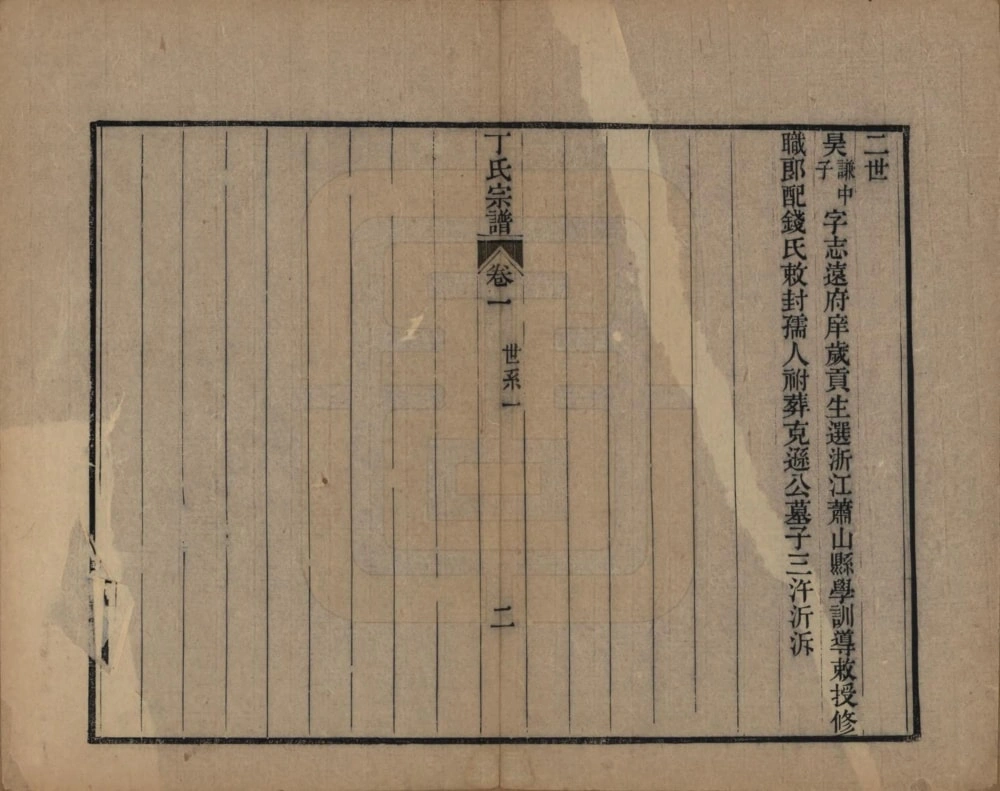 二世
昊謙中子字志遠府庠歲貢生選浙江蕭山縣學訓導敕授修
職郎配錢氏敕封孺人祔葬克遜公墓子三汻沂泝
丁氏宗譜
卷一
世系一
二